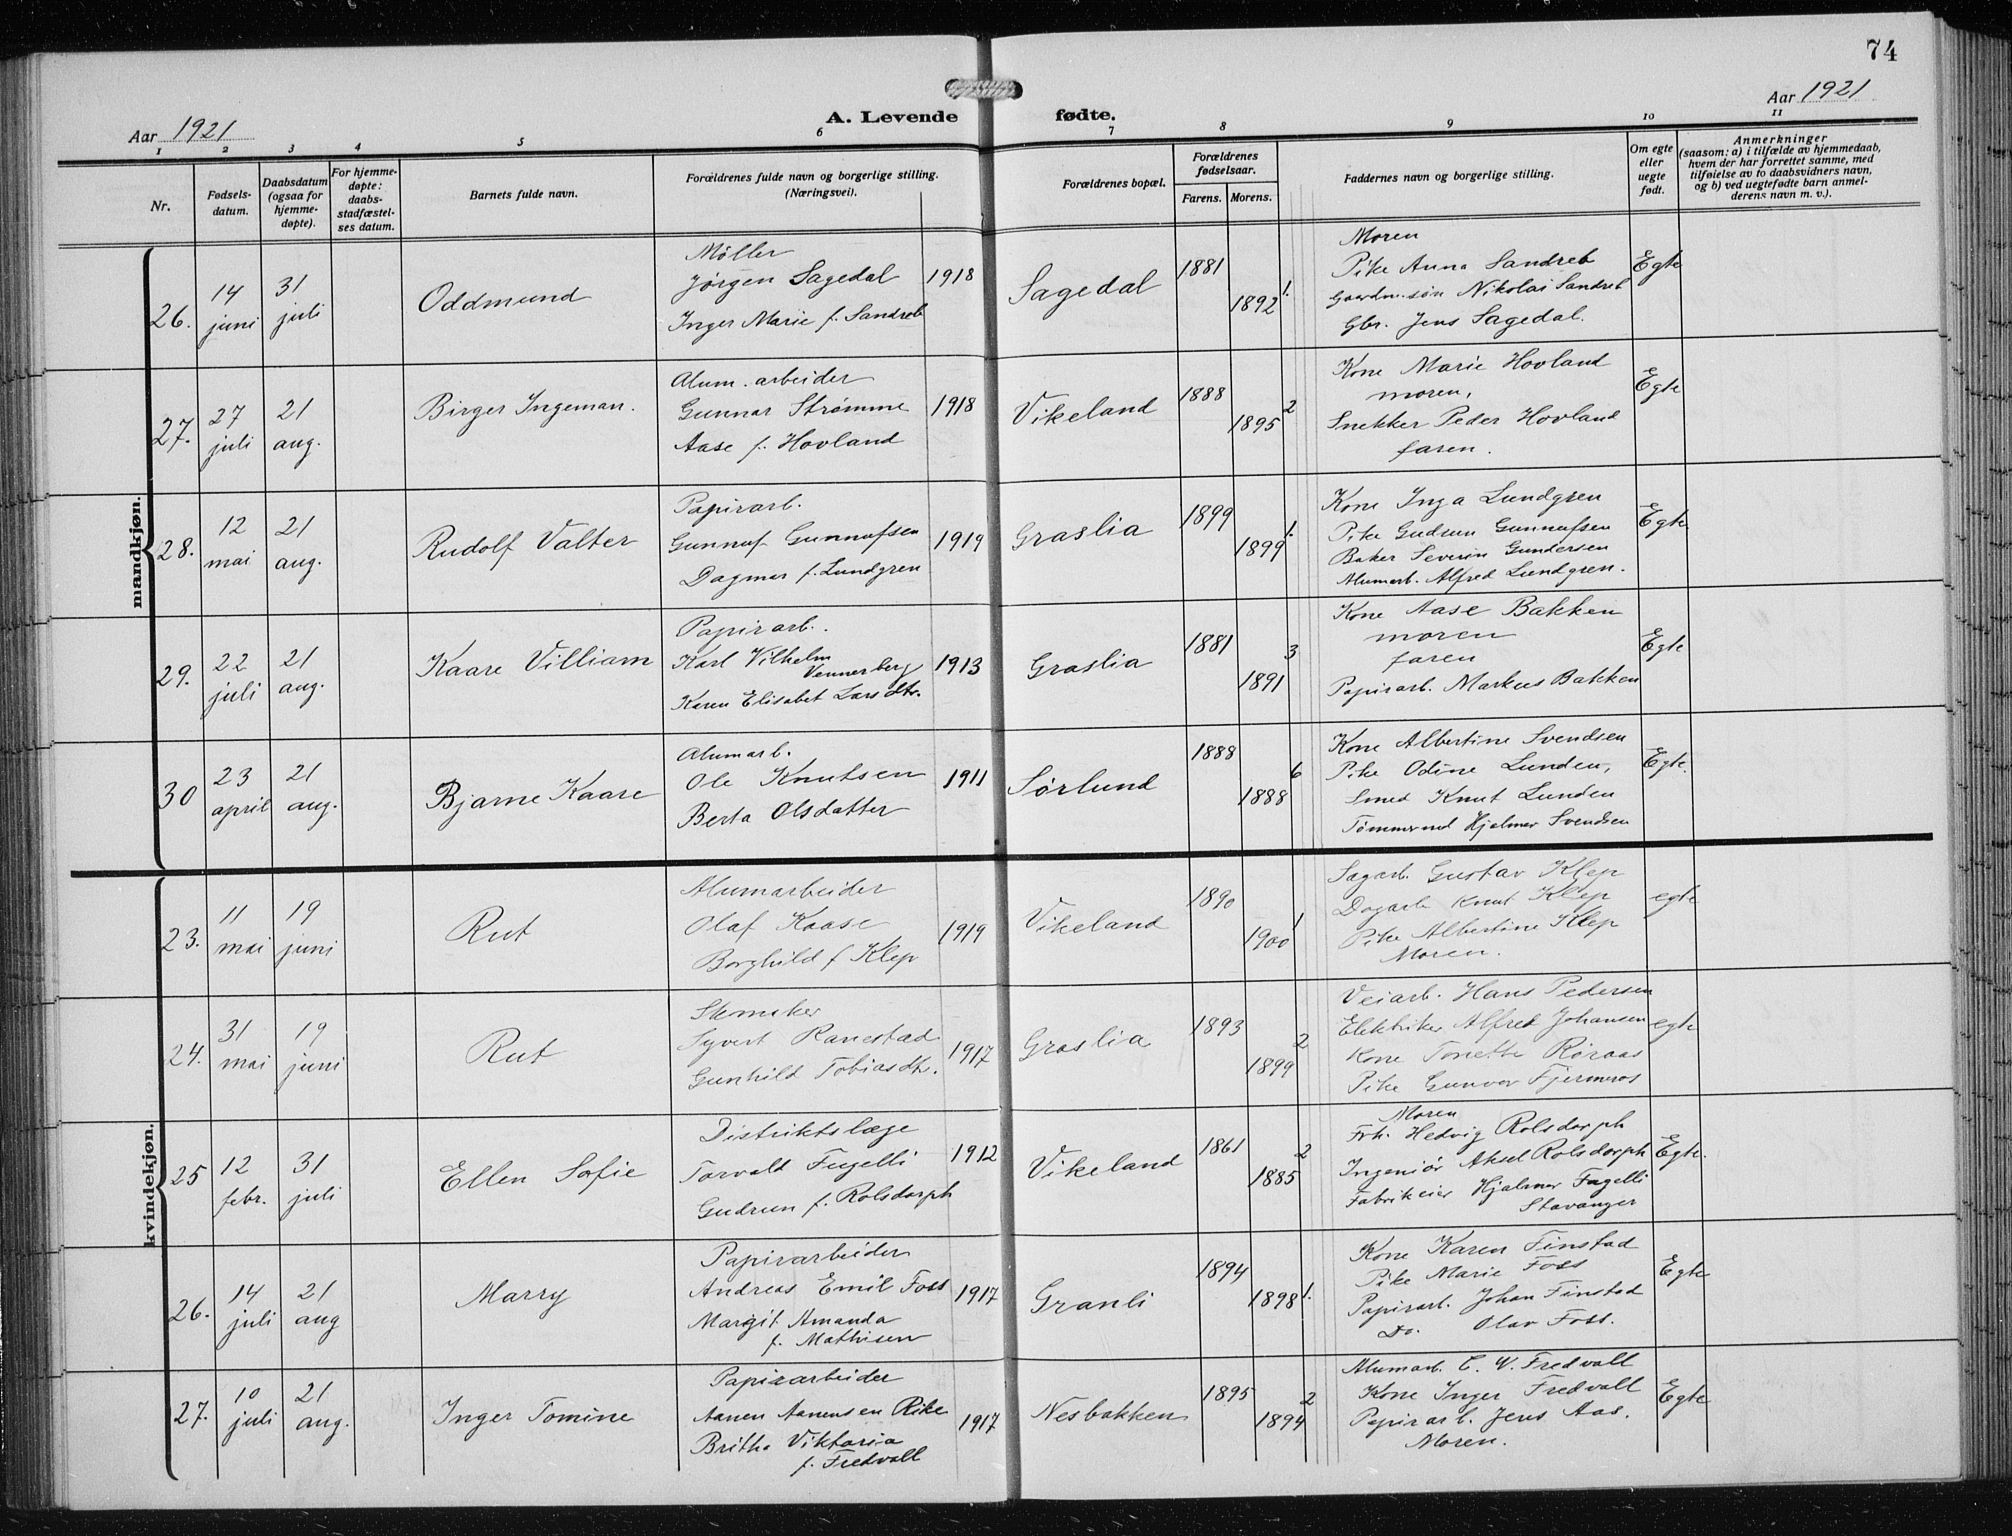 74
Aar 1921
A. Levende fødte.
Aar 1921
1 2 3 4 5 6 7 8 9 10 11
Nr.
Fødsels-
datum.
Daabsdatum
(ogsaa for
hjemme-
døpte).
For hjemme-
døpte:
daabs-
stadfæstel-
ses datum.
Barnets fulde navn.
Forældrenes fulde navn og borgerlige stilling.
(Næringsvei).
Forældrenes bopæl.
Forældrenes
fødselsaar.
Farens. Morens.
Faddernes navn og borgerlige stilling.
Om egte
eller
uegte
født.
Anmerkninger
(saasom: a) i tilfælde av hjemmedaab,
hvem der har forrettet samme, med
tilføielse av to daabsvidners navn,
og b) ved uegtefødte barn anmel-
derens navn m. v.).
mandkjøn.
26.
14
juni
31
juli
Oddmund
Møller
Jørgen Sagedal 1918
Inger Marie f. Sandreb
Sagedal
1881
1892
1.
Moren
Pike Anna Sandreb
Gaardm.søn Nikolai Sandreb
Gbr. Jens Sagedal.
Egte
27.
27
juli
21
aug.
Birger Ingeman.
Alum. arbeider
Gunnar Strømme 1918
Aase f. Hovland
Vikeland
1888
1895
2
Kone Marie Hovland
moren,
Snekker Peder Hovland
faren.
Egte
28.
12
mai
21
aug.
Rudolf Valter
Papirarb.
Gunnuf Gunnufsen 1919
Dagmar f. Lundgren
Graslia
1899
1899
1.
Kone Inga Lundgren
Pike Gudrun Gunnufsen
Baker Severin Gundersen
Alumarb. Alfred Lundgren.
Egte
29.
22
juli
21
aug.
Kaare Villiam
Papirarb.
Karl Vilhelm
Vennerberg 1913
Karen Elisabet Larsdtr.
Graslia
1881
1891
3
Kone Aase Bakken
moren
faren
Papirarb. Markus Bakken
Egte
30
23
april
21
aug.
Bjarne Kaare
Alumarb.
Ole Knutsen 1911
Berta Olsdatter
Sørlund
1888
1888
6
Kone Albertine Svendsen
Pike Odine Lunden,
Smed Knut Lunden
Tømmermd Hjalmar Svendsen
Egte.
kvindekjøn.
23.
11
mai
19
juni
Rut
Alumarbeider
Olaf Kaase 1919
Borghild f Klep
Vikeland
1890
1900
1
Sagarb. Gustav Klep
Dagarb Knut Klep
Pike Albertine Klep
Moren.
egte
24.
31
mai
19
juni
Rut
Syvert Ranestad
Gunhild Tobiasdtr. 1917
Graslia
1893
1899
2
Veiarb. Hans Pedersen
Elektriker Alfred Johansen
Kone Tonette Røraas
Pike Gunvor Fjermeros
egte
25
12
febr.
31
juli
Ellen Sofie
Distriktslæge
Torvald Fugelli 1912
Gudrun f. Rolsdorph
Vikeland
1861
1885
2
Moren
Frk. Hedvig Rolsdorph
Ingeniør Aksel Rolsdorph
Fabrikeier Hjalmar Fugelli
Stavanger
Egte.
26.
14
juli
21
aug
Marry
Papirarbeider
Andreas Emil Foss 1917
Margit Amanda
f. Mathisen
Granli
1894
1898
1.
Kone Karen Finstad
Pike Marie Foss
Papirarb. Johan Finstad
Do. Olav Foss.
Egte
27.
10
juli
21
aug.
Inger Tomine
Papirarbeider
Aanen Aanensen Rike
Britha Viktoria 1917
f. Fredvall
Nesbakken
1895
1894
2
Alumarb. C. W. Fredvall
Kone Inger Fredvall
Papirarb. Jens Aas.
Moren.
Egte